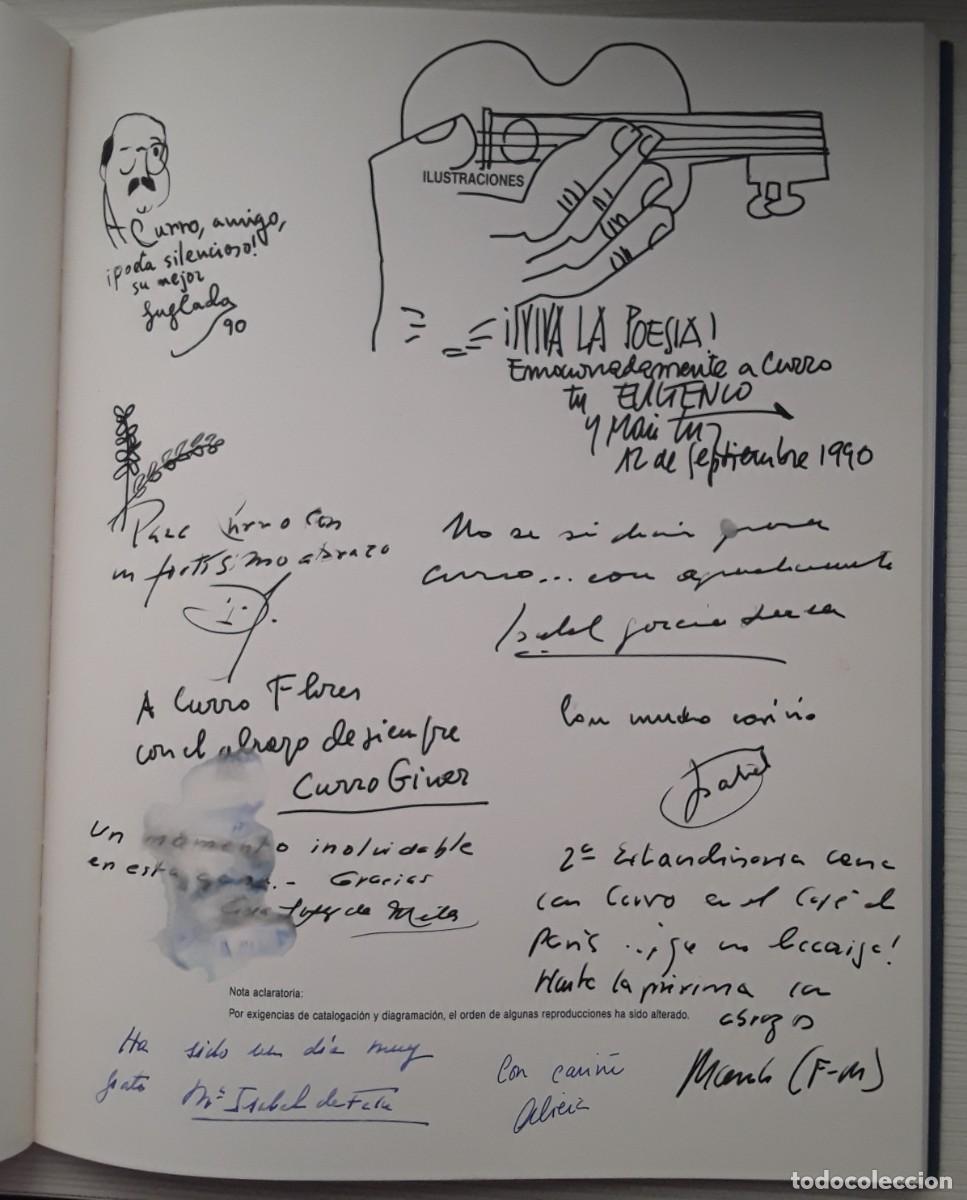 ILUSTRACIONES
A Curro, amigo,
¡poeta silencioso!
su mejor
Juglada
90
¡VIVA LA POESIA!
Emocionadamente a Curro
tu EUGENIO
y Mari
12 de Septiembre 1990
Para Curro con
un fortísimo abrazo
No se si decir
Curro... con
Isabel García Lorca
A Curro Flores
con el abrazo de siempre
Curro Giner
Con mucho cariño
Isabel
Un momento inolvidable
en esta casa.- Gracias
López de Mila
2ª Extraordinaria cena
con Curro en el Café de
París
Hasta la próxima
abrazos
(F-M)
Nota aclaratoria:
Por exigencias de catalogación y diagramación, el orden de algunas reproducciones ha sido alterado.
Ha sido un día muy
grato Mª Isabel de
Con cariño
Alicia
todocoleccion